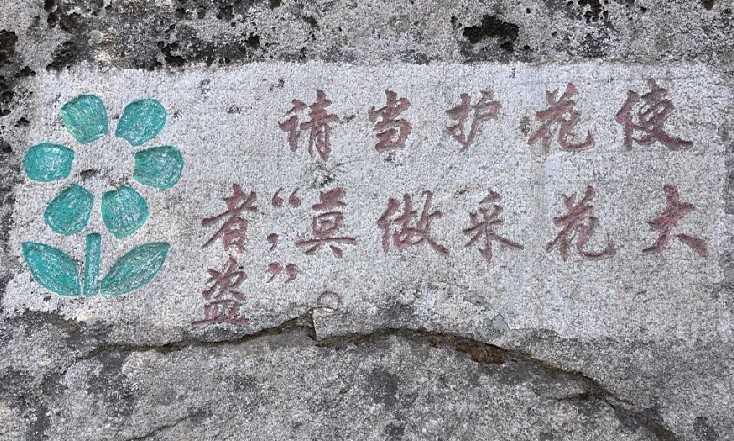 请当护花使
者，“莫做采花大
盗”。